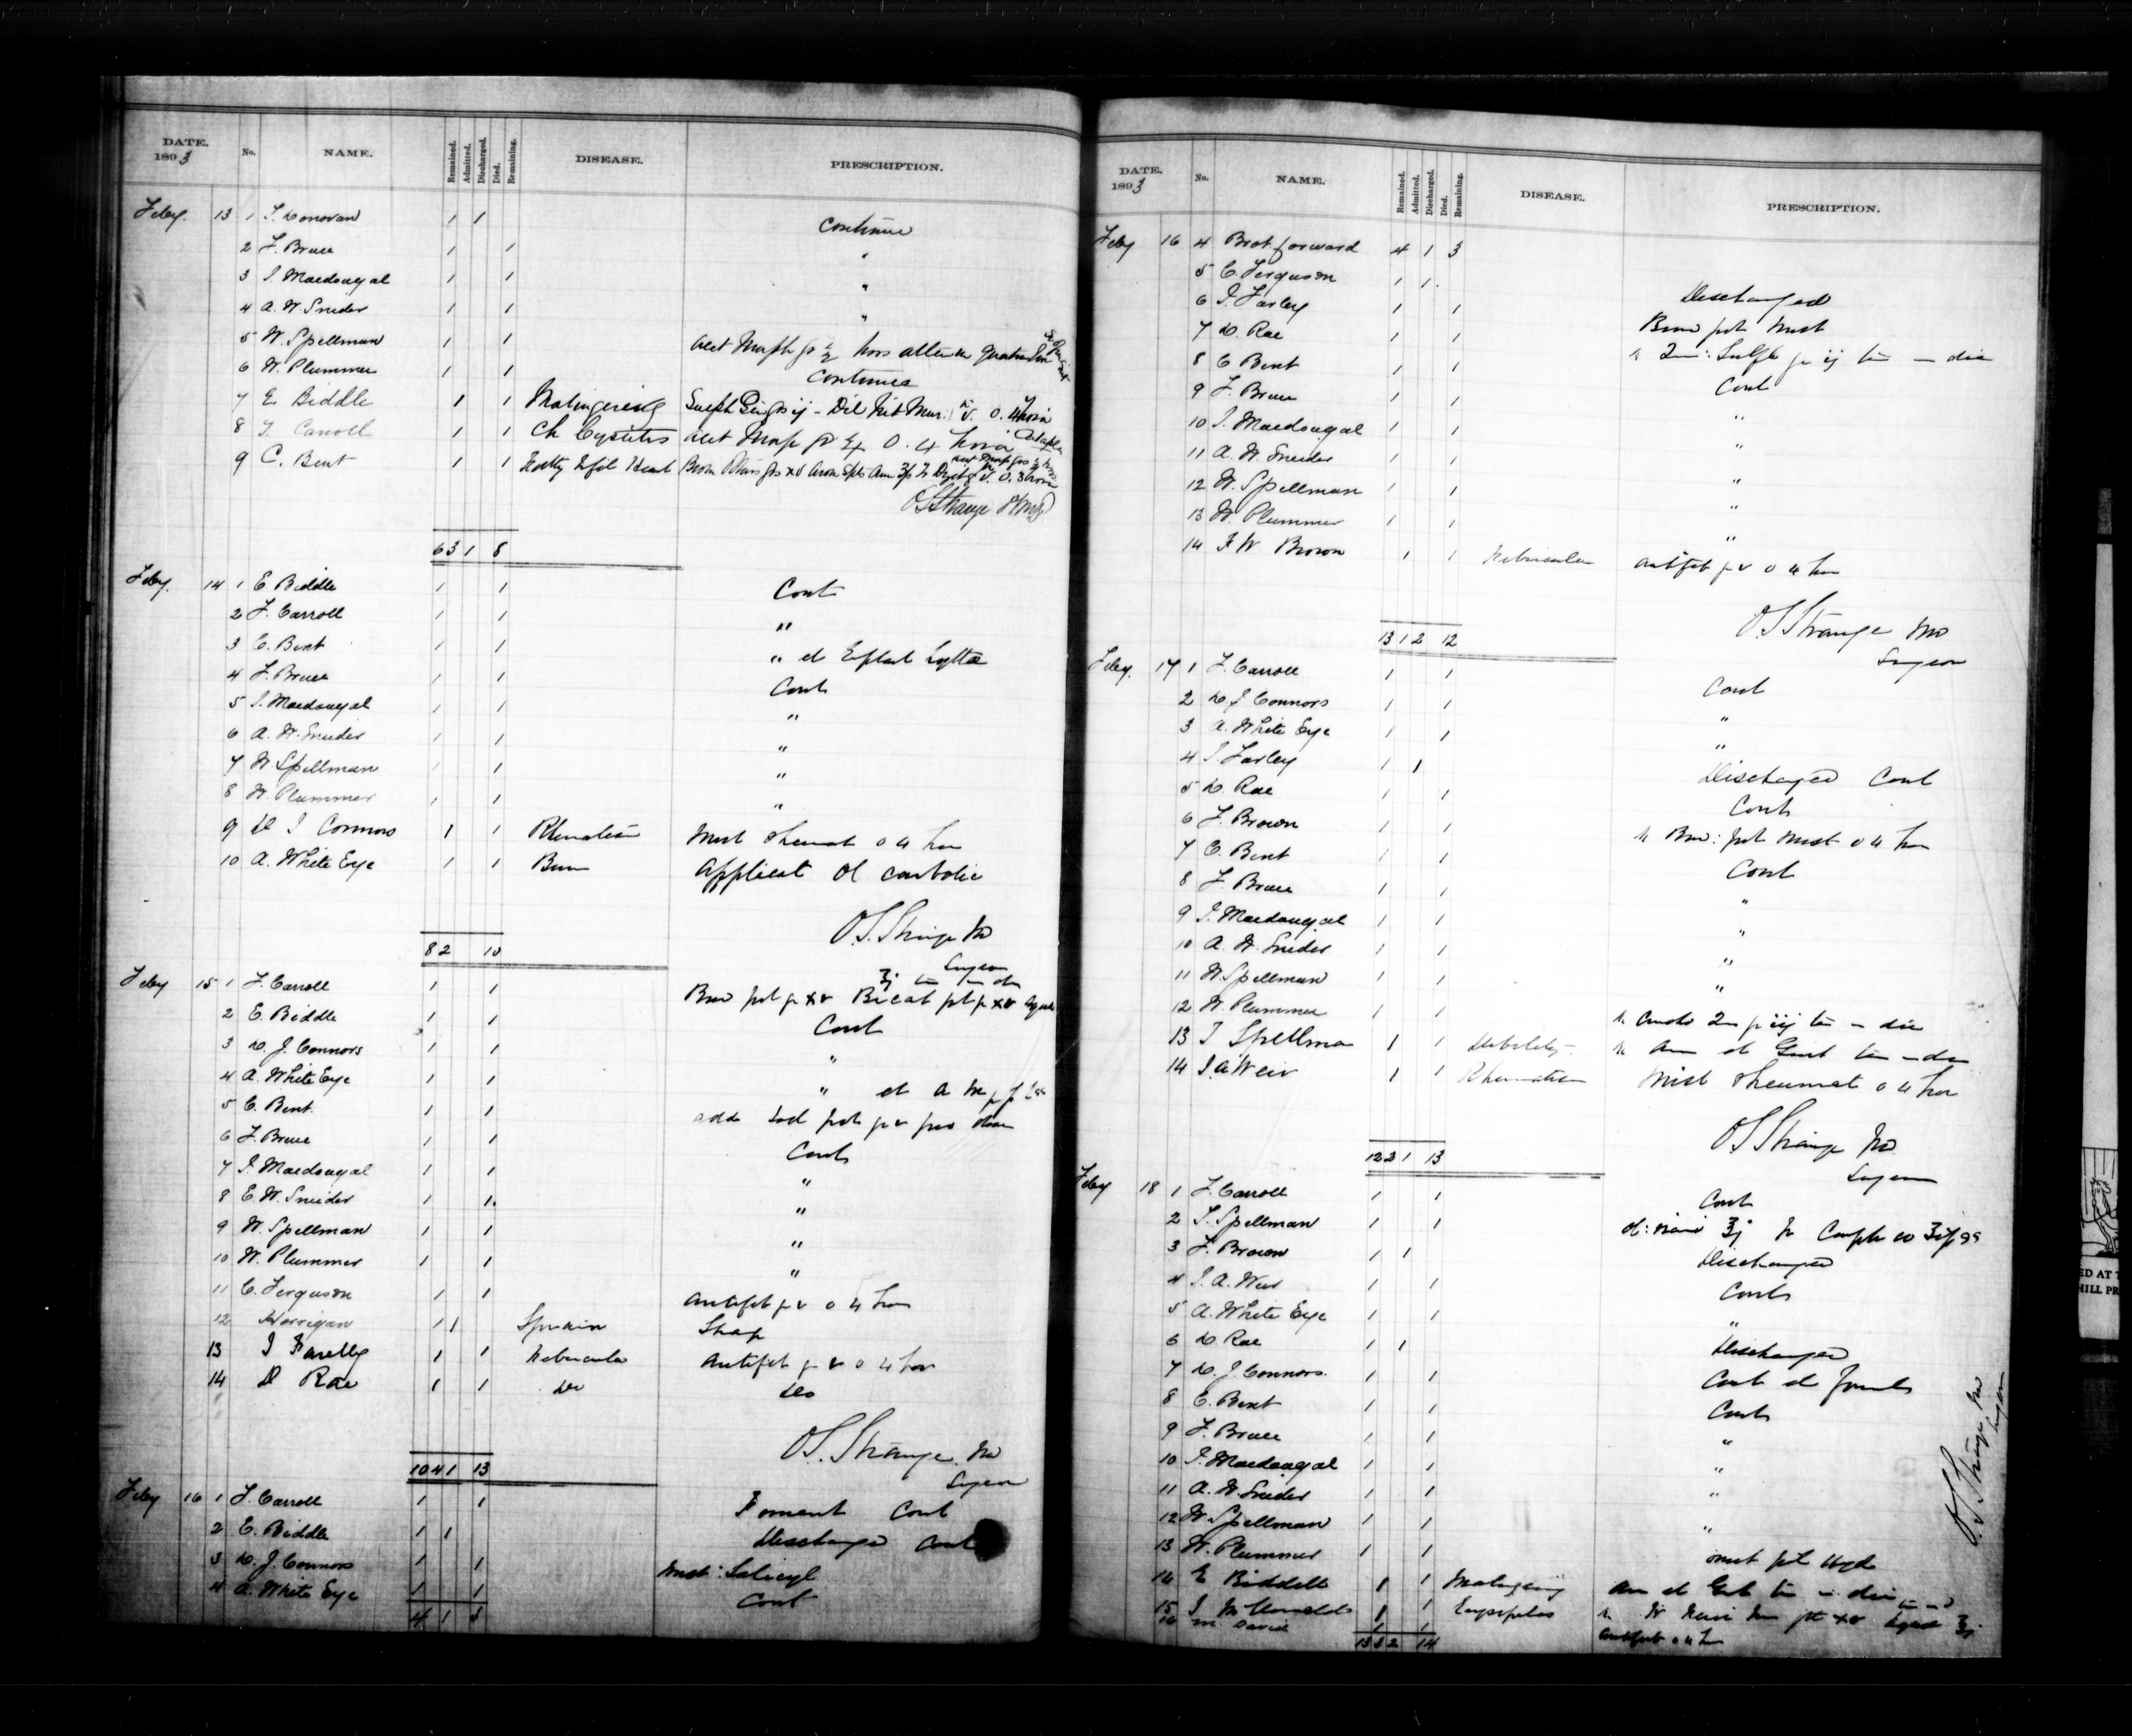 DATE. 1893 No. NAME. Remained. Admitted. Discharged. Died. Remaining. DISEASE. PRESCRIPTION.
Feby. 13 1 J. Donovan 1 1 Continue
2 F. Bruce 1 1 "
3 J. Macdougal 1 1 "
4 A. W. Snider 1 1 "
5 W. Spellman 1 1 Acet Morph gr ½
6 W. Plummer 1 1 Continue
7 E. Biddle 1 1 Malingering Dil Nit Mur. V. O. 4 hora
8 F. Carroll 1 1 Ch Cystitis Acet Morp gr ¼ O. 4 hora
9 C. Bent 1 1 Fatty Heart
O S Strange
6 3 1 8
Feby. 14 1 E Biddle 1 1 Cont
2 F. Carroll 1 1 "
3 C. Bent 1 1 " et Emplast Lytta
4 F. Bruce 1 1 Cont
5 J. Macdougal 1 1 "
6 A. W. Snider 1 1 "
7 W. Spellman 1 1 "
8 W. Plummer 1 1 "
9 D J Connors 1 1 Rheumatism Mist rheumat o 4 hor
10 A. White Eye 1 1 Burn Applicat Ol carbolic
O. S. Strange MD
Surgeon
8 2 10
Feby 15 1 F. Carroll 1 1 Brom pot gr xv Bicarb pot gr xv aqua
2 E. Biddle 1 1 Cont
3 D. J. Connors 1 1 "
4 A. White Eye 1 1 " et
5 C. Bent. 1 1 add Iod pot gr v pro dose
6 F. Bruce 1 1 Cont
7 J. Macdougal 1 1 "
8 E. W. Snider 1 1 "
9 W. Spellman 1 1 "
10 W. Plummer 1 1 "
11 C. Ferguson 1 1 Antifeb gr v o 4 hor
12 Horrigan 1 1 Sprain Strap
13 J Farelly 1 1 Febricula Antifeb gr v o 4 hor
14 D Rae 1 1 Do Do
O. S. Strange. MD
Surgeon
10 4 1 13
Feby 16 1 F. Carroll 1 1 Foment Cont
2 E. Biddle 1 1 Discharged Cont
3 D. J. Connors 1 1 Mist: Salicyl
4 A. White Eye 1 1 Cont
4 1 3
DATE. 1893 No. NAME. Remained. Admitted. Discharged. Died. Remaining. DISEASE. PRESCRIPTION.
Feby 16 4 Brot forward 4 1 3
5 C. Ferguson 1 1 Discharged
6 J. Farley 1 1 Brom pot Mist
7 D. Rae 1 1
8 C Bent 1 1 Cont
9 F. Bruce 1 1 "
10 J. Macdougal 1 1 "
11 A. W. Snider 1 1 "
12 W. Spellman 1 1 "
13 W. Plummer 1 1 "
14 F W Brown 1 1 Febricula Antifeb gr v o 4 hor
O S Strange MD
Surgeon
13 1 2 12
Feby. 17 1 F. Carroll 1 1 Cont
2 D. J Connors 1 1 "
3 A. White Eye 1 1 "
4 J. Farley 1 1 Discharged Cont
5 D. Rae 1 1 Cont
6 F. Brown 1 1 Brom: pot Mist o 4 hor
7 C. Bent 1 1 Cont
8 F. Bruce 1 1 "
9 J. Macdougal 1 1 "
10 A. W. Snider 1 1 "
11 W. Spellman 1 1 "
12 W. Plummer 1 1
13 J Spellman 1 1 Debility
14 J. A Weir 1 1 Rheumatism Mist rheumat o 4 hor
O S Strange MD
Surgeon
12 2 1 13
Feby 18 1 F. Carroll 1 1 Cont
2 J. Spellman 1 1
3 F. Brown 1 1 Discharged
4 J. A. Weir 1 1 Cont
5 A. White Eye 1 1 "
6 D. Rae 1 1 Discharged
7 D. J. Connors. 1 1 Cont et foment
8 C. Bent 1 1 Cont
9 F. Bruce 1 1 "
10 J. Macdougal 1 1 "
11 A. W. Snider 1 1 "
12 W. Spellman 1 1 "
13 W. Plummer 1 1
14 E Biddell 1 1 Malingering
15 J 1 1 Erysipelas
16 M. David 1 1 Antifeb o 4 h
13 3 2 14
O. S. Strange MD
Surgeon